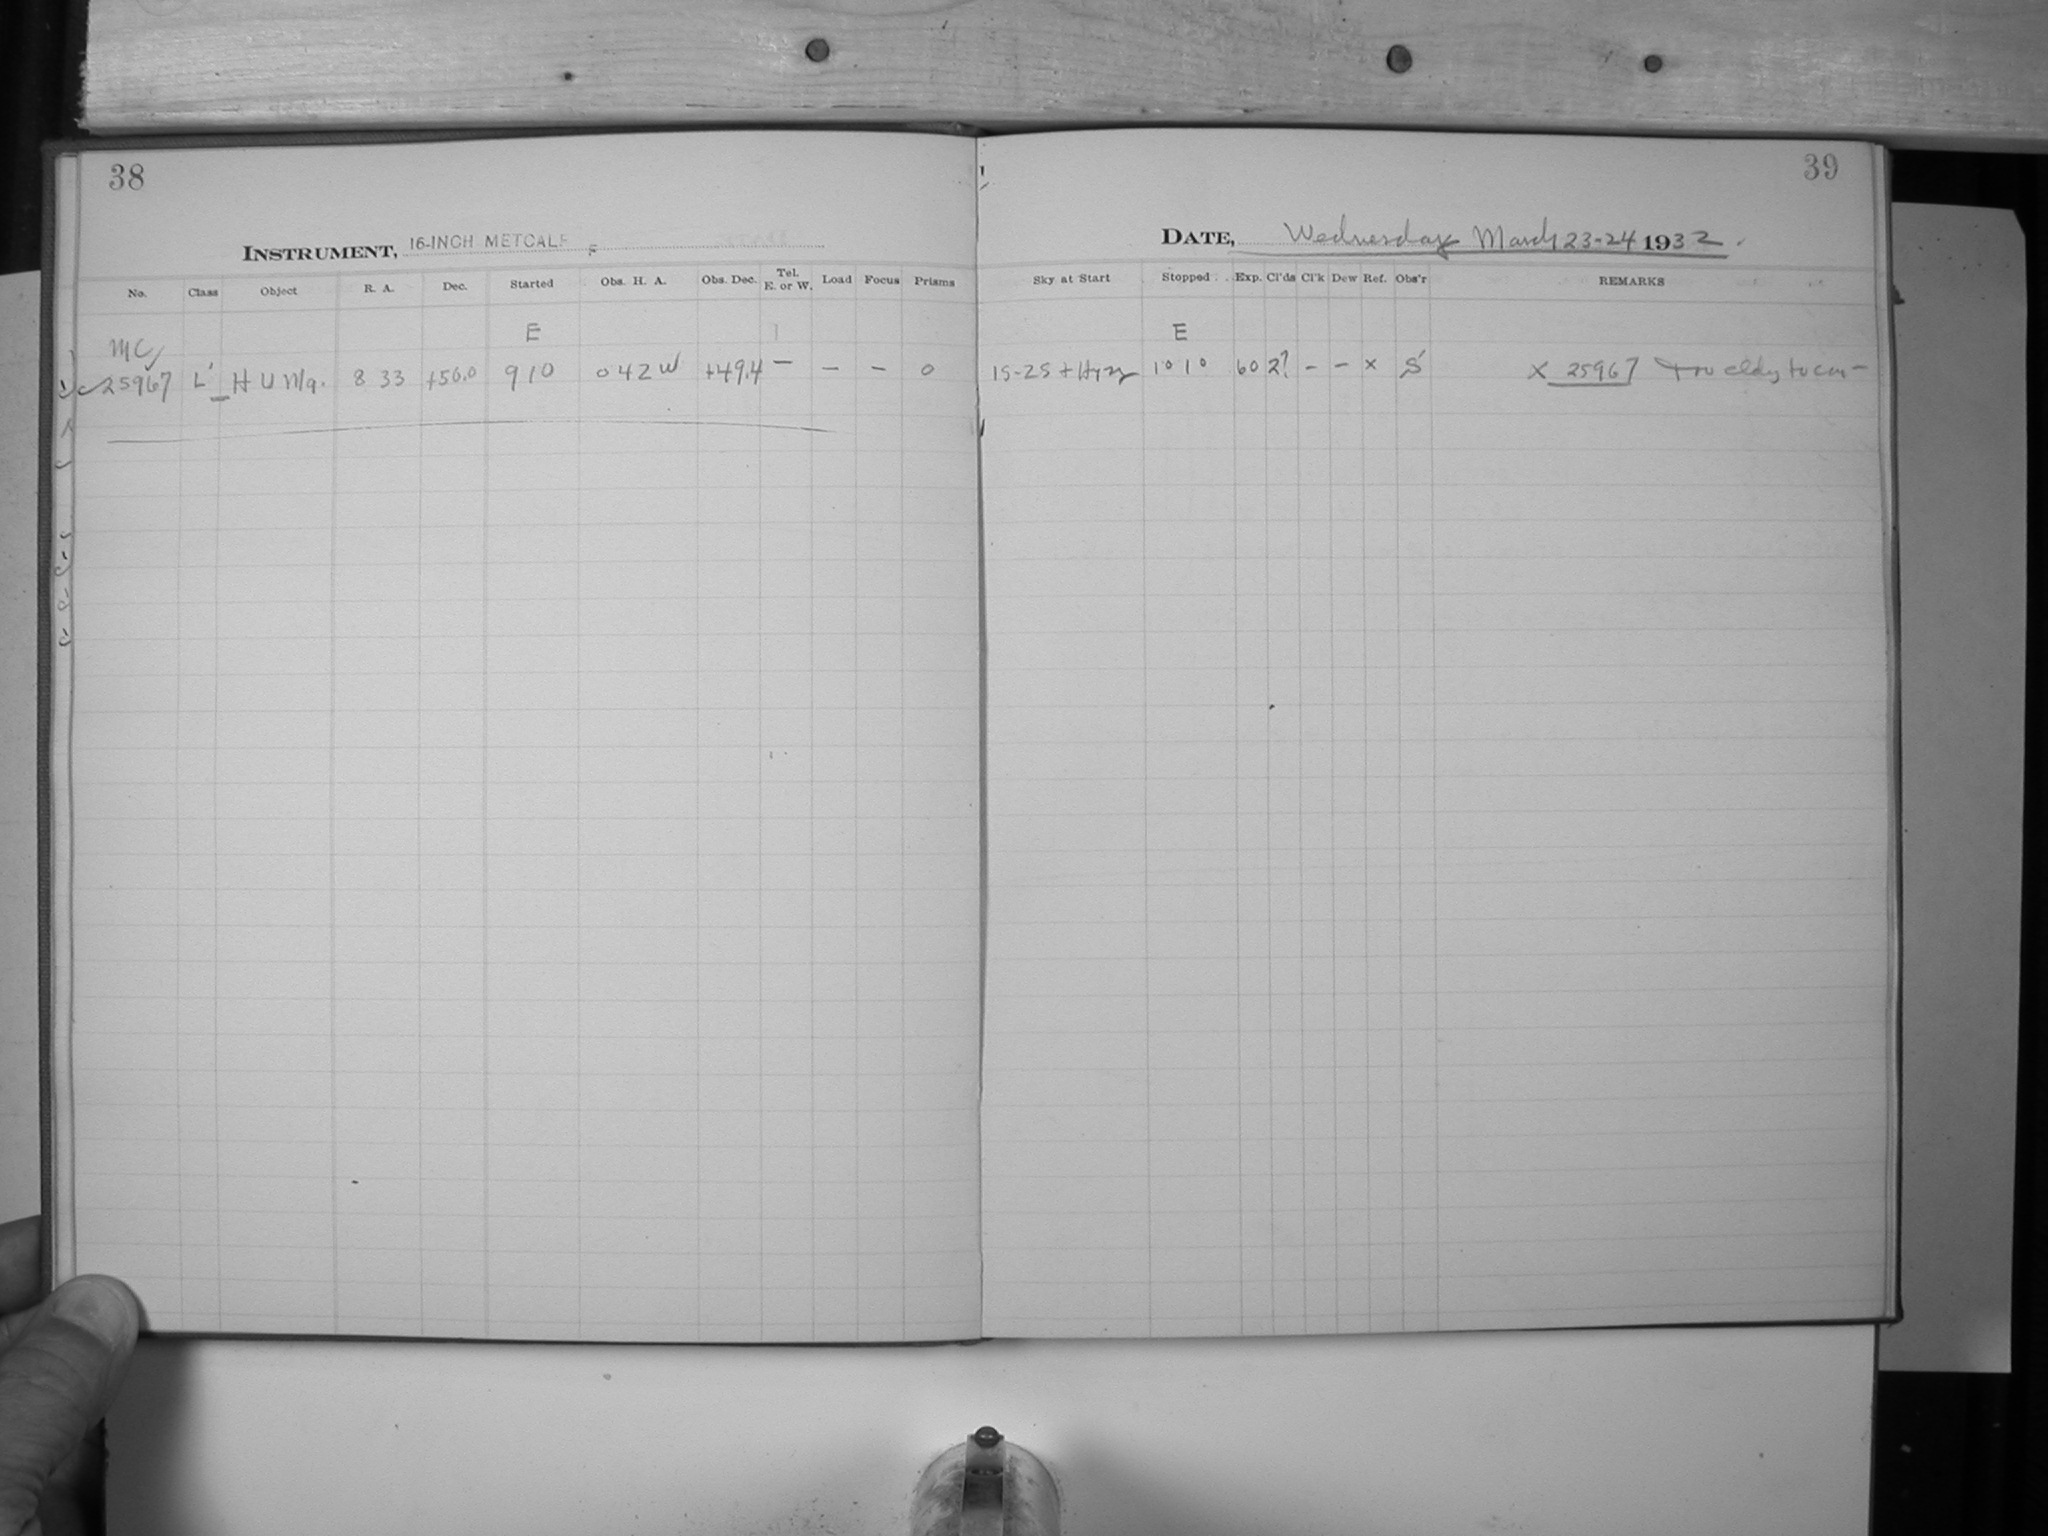 38
INSTRUMENT, 16-INCH METCALF
No. Class Object R. A. Dec. Started Obs. H. A. Obs. Dec. Tel. E. or W. Load Focus Prisms
E
MC
25967 L H U Ma. 8 33 +56.0 9 10 0 42 W +49.4 — — — 0
39
DATE, Wednesday March 23-24 1932.
Sky at Start Stopped Exp. Cl'ds Cl'k Dew Ref. Obs'r REMARKS
E
1S-2S + Hyzy 10 10 60 2? - - x S x 25967 Too cldy to con-